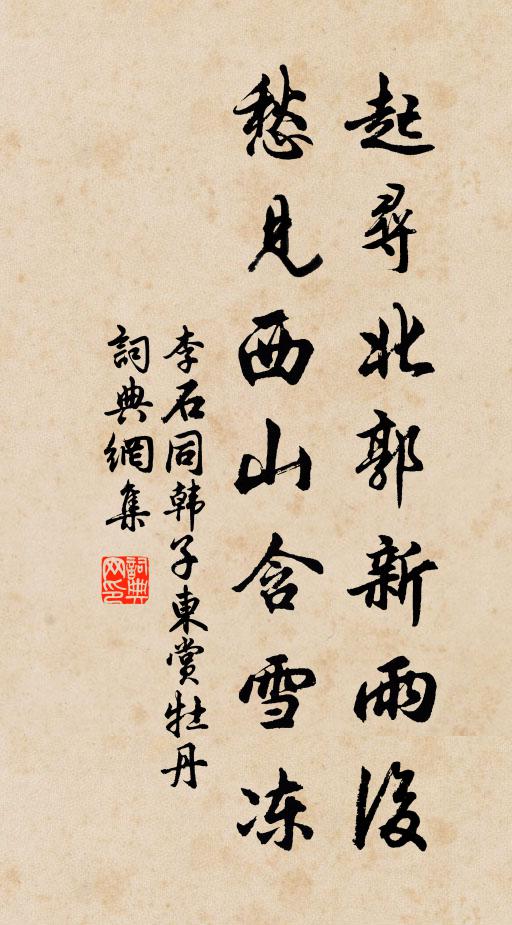 起尋北郭新雨後
愁見西山含雪冻
李石同韩子東賞牡丹
詞典網集
詞典网印